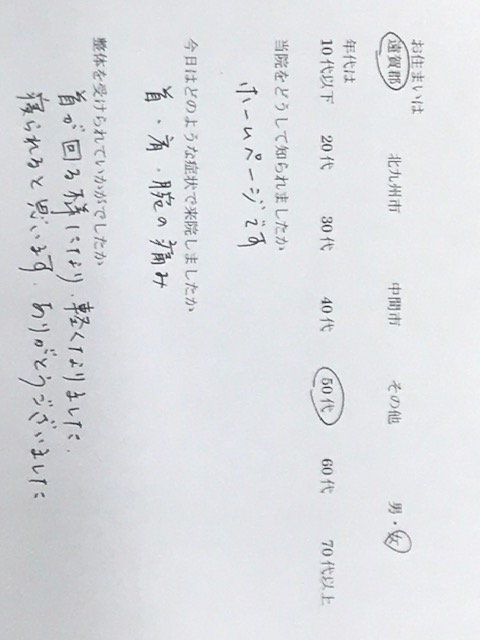 お住まいは
遠賀郡 北九州市 中間市 その他 男・女
年代は
10代以下 20代 30代 40代 50代 60代 70代以上
当院をどうして知られましたか
ホームページです
今日はどのような症状で来院しましたか
首、肩、腕の痛み
整体を受けられていかがでしたか
首が回る様になり、軽くなりました。
寝られると思います。ありがとうございました